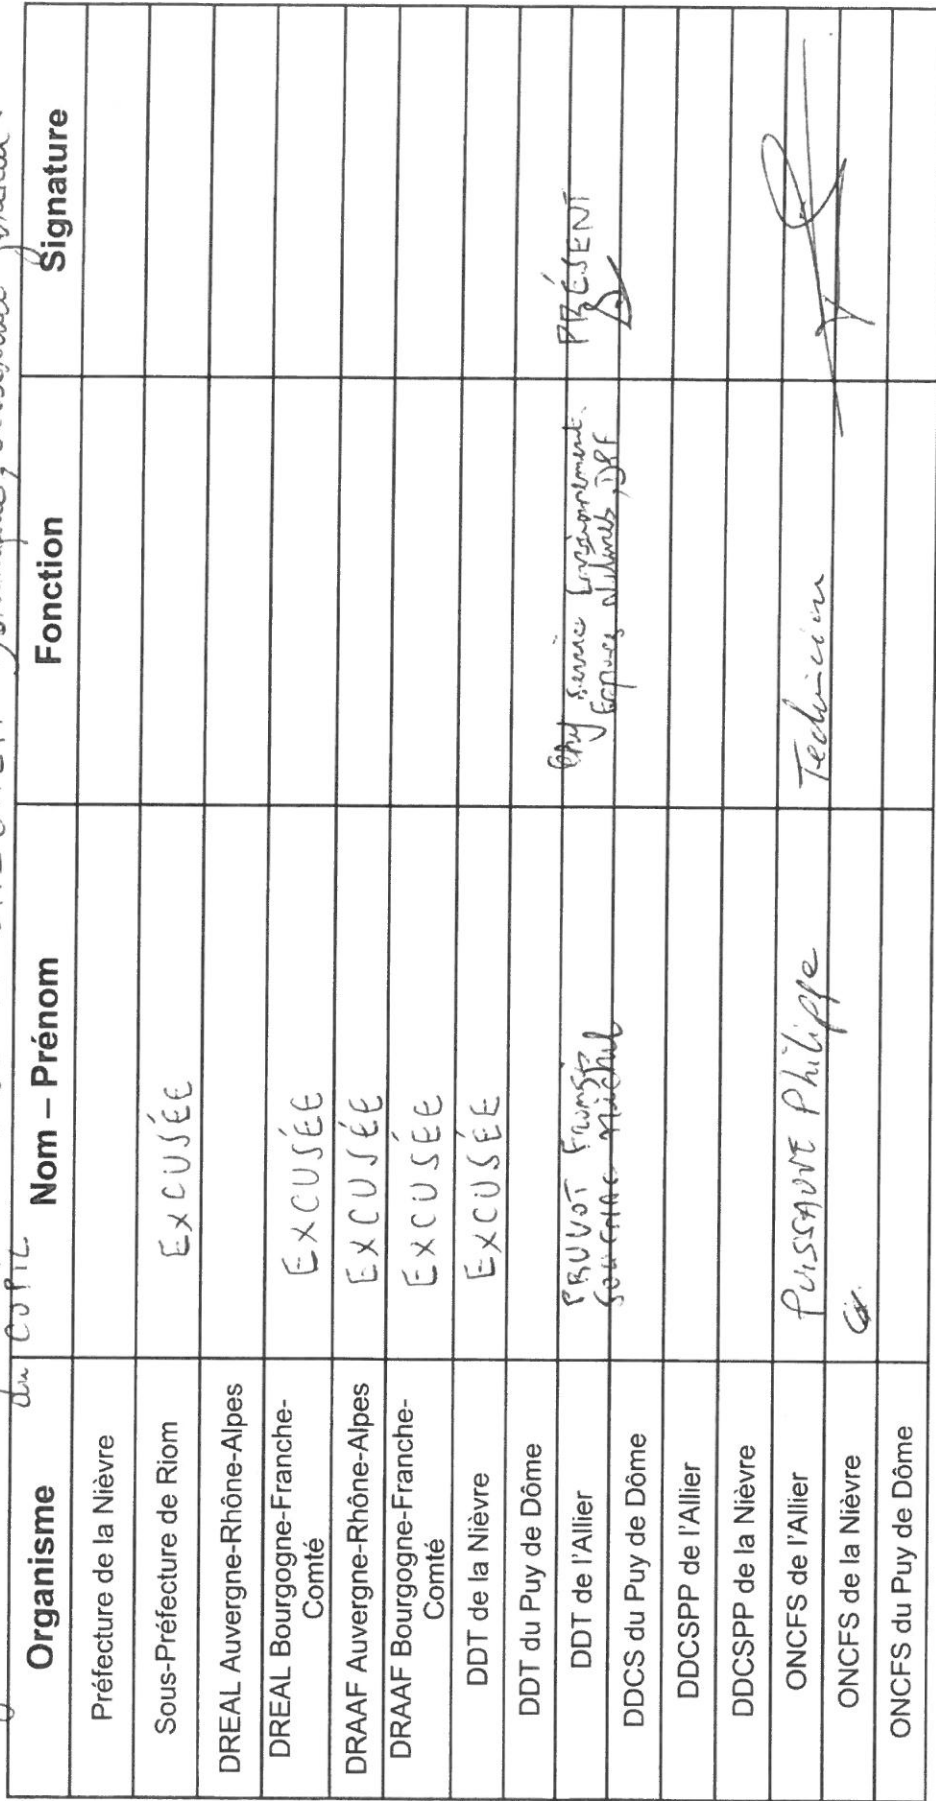 du COPIL
Organisme Nom – Prénom Fonction Signature
Préfecture de la Nièvre
Sous-Préfecture de Riom EXCUSÉE
DREAL Auvergne-Rhône-Alpes
DREAL Bourgogne-Franche-
Comté EXCUSÉE
DRAAF Auvergne-Rhône-Alpes EXCUSÉE
DRAAF Bourgogne-Franche-
Comté EXCUSÉE
DDT de la Nièvre EXCUSÉE
DDT du Puy de Dôme
DDT de l'Allier PRUVOT Service Environnement PRÉSENT
Michel Espaces
DDCS du Puy de Dôme
DDCSPP de l'Allier
DDCSPP de la Nièvre
ONCFS de l'Allier PUISSAUVE Philippe Technicien
ONCFS de la Nièvre
ONCFS du Puy de Dôme